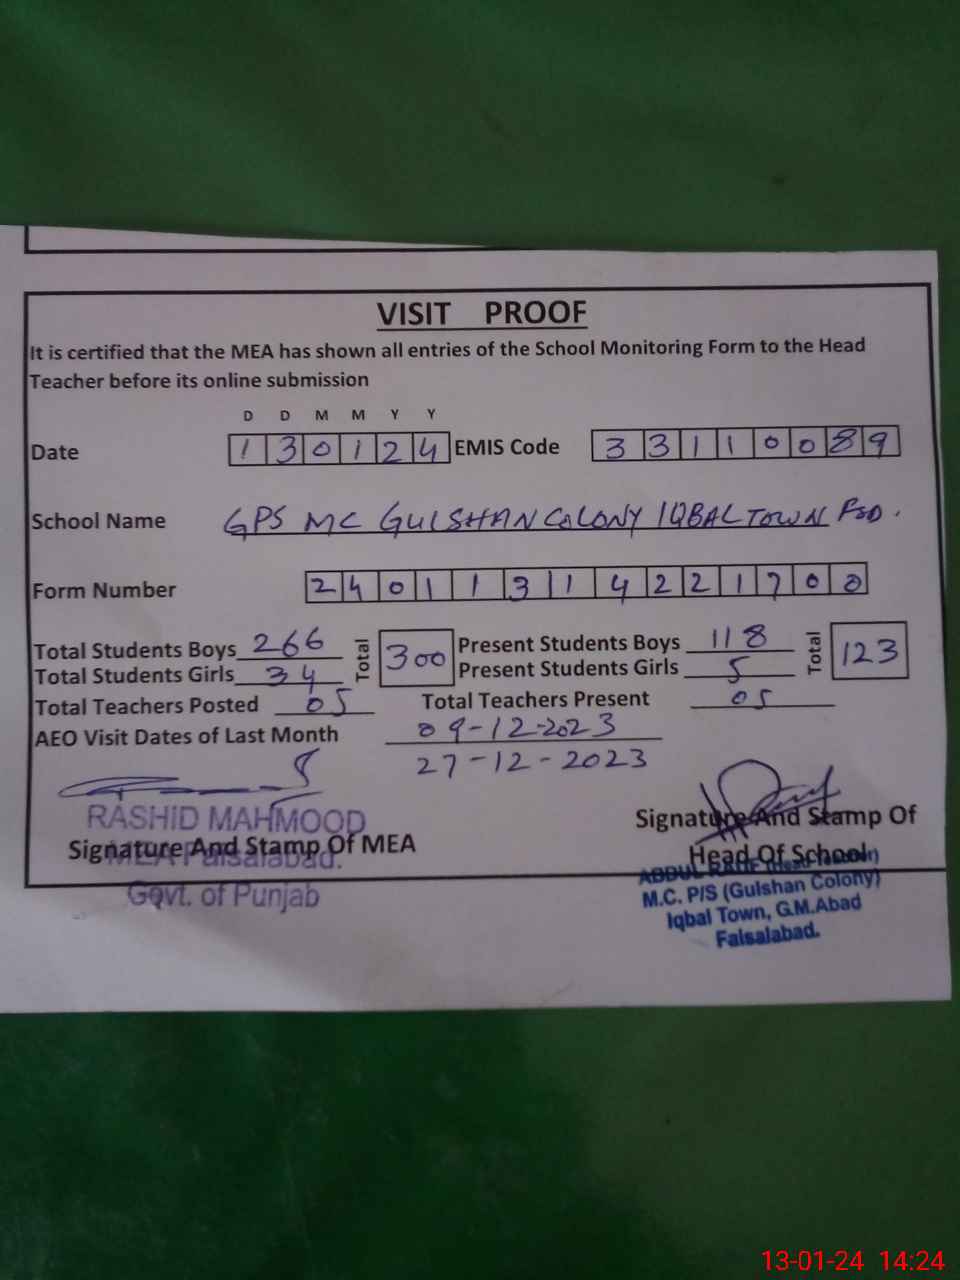 VISIT PROOF
It is certified that the MEA has shown all entries of the School Monitoring Form to the Head
Teacher before its online submission
D D M M Y Y
Date 1 3 0 1 2 4 EMIS Code 3 3 1 1 0 0 8 9
School Name GPS MC GULSHAN COLONY IQBAL TOWN FSD.
Form Number 2 4 0 1 1 3 1 4 2 2 1 7 0 0
Total Students Boys 266 Total 300 Present Students Boys 118 Total 123
Total Students Girls 34 Present Students Girls 5
Total Teachers Posted 05 Total Teachers Present 05
AEO Visit Dates of Last Month 09-12-2023
27-12-2023
RASHID MAHMOOD
Signature And Stamp Of MEA
MEA Faisalabad.
Govt. of Punjab
Signature And Stamp Of
Head Of School
ABDUL
M.C. P/S (Gulshan Colony)
Iqbal Town, G.M.Abad
Faisalabad.
13-01-24 14:24